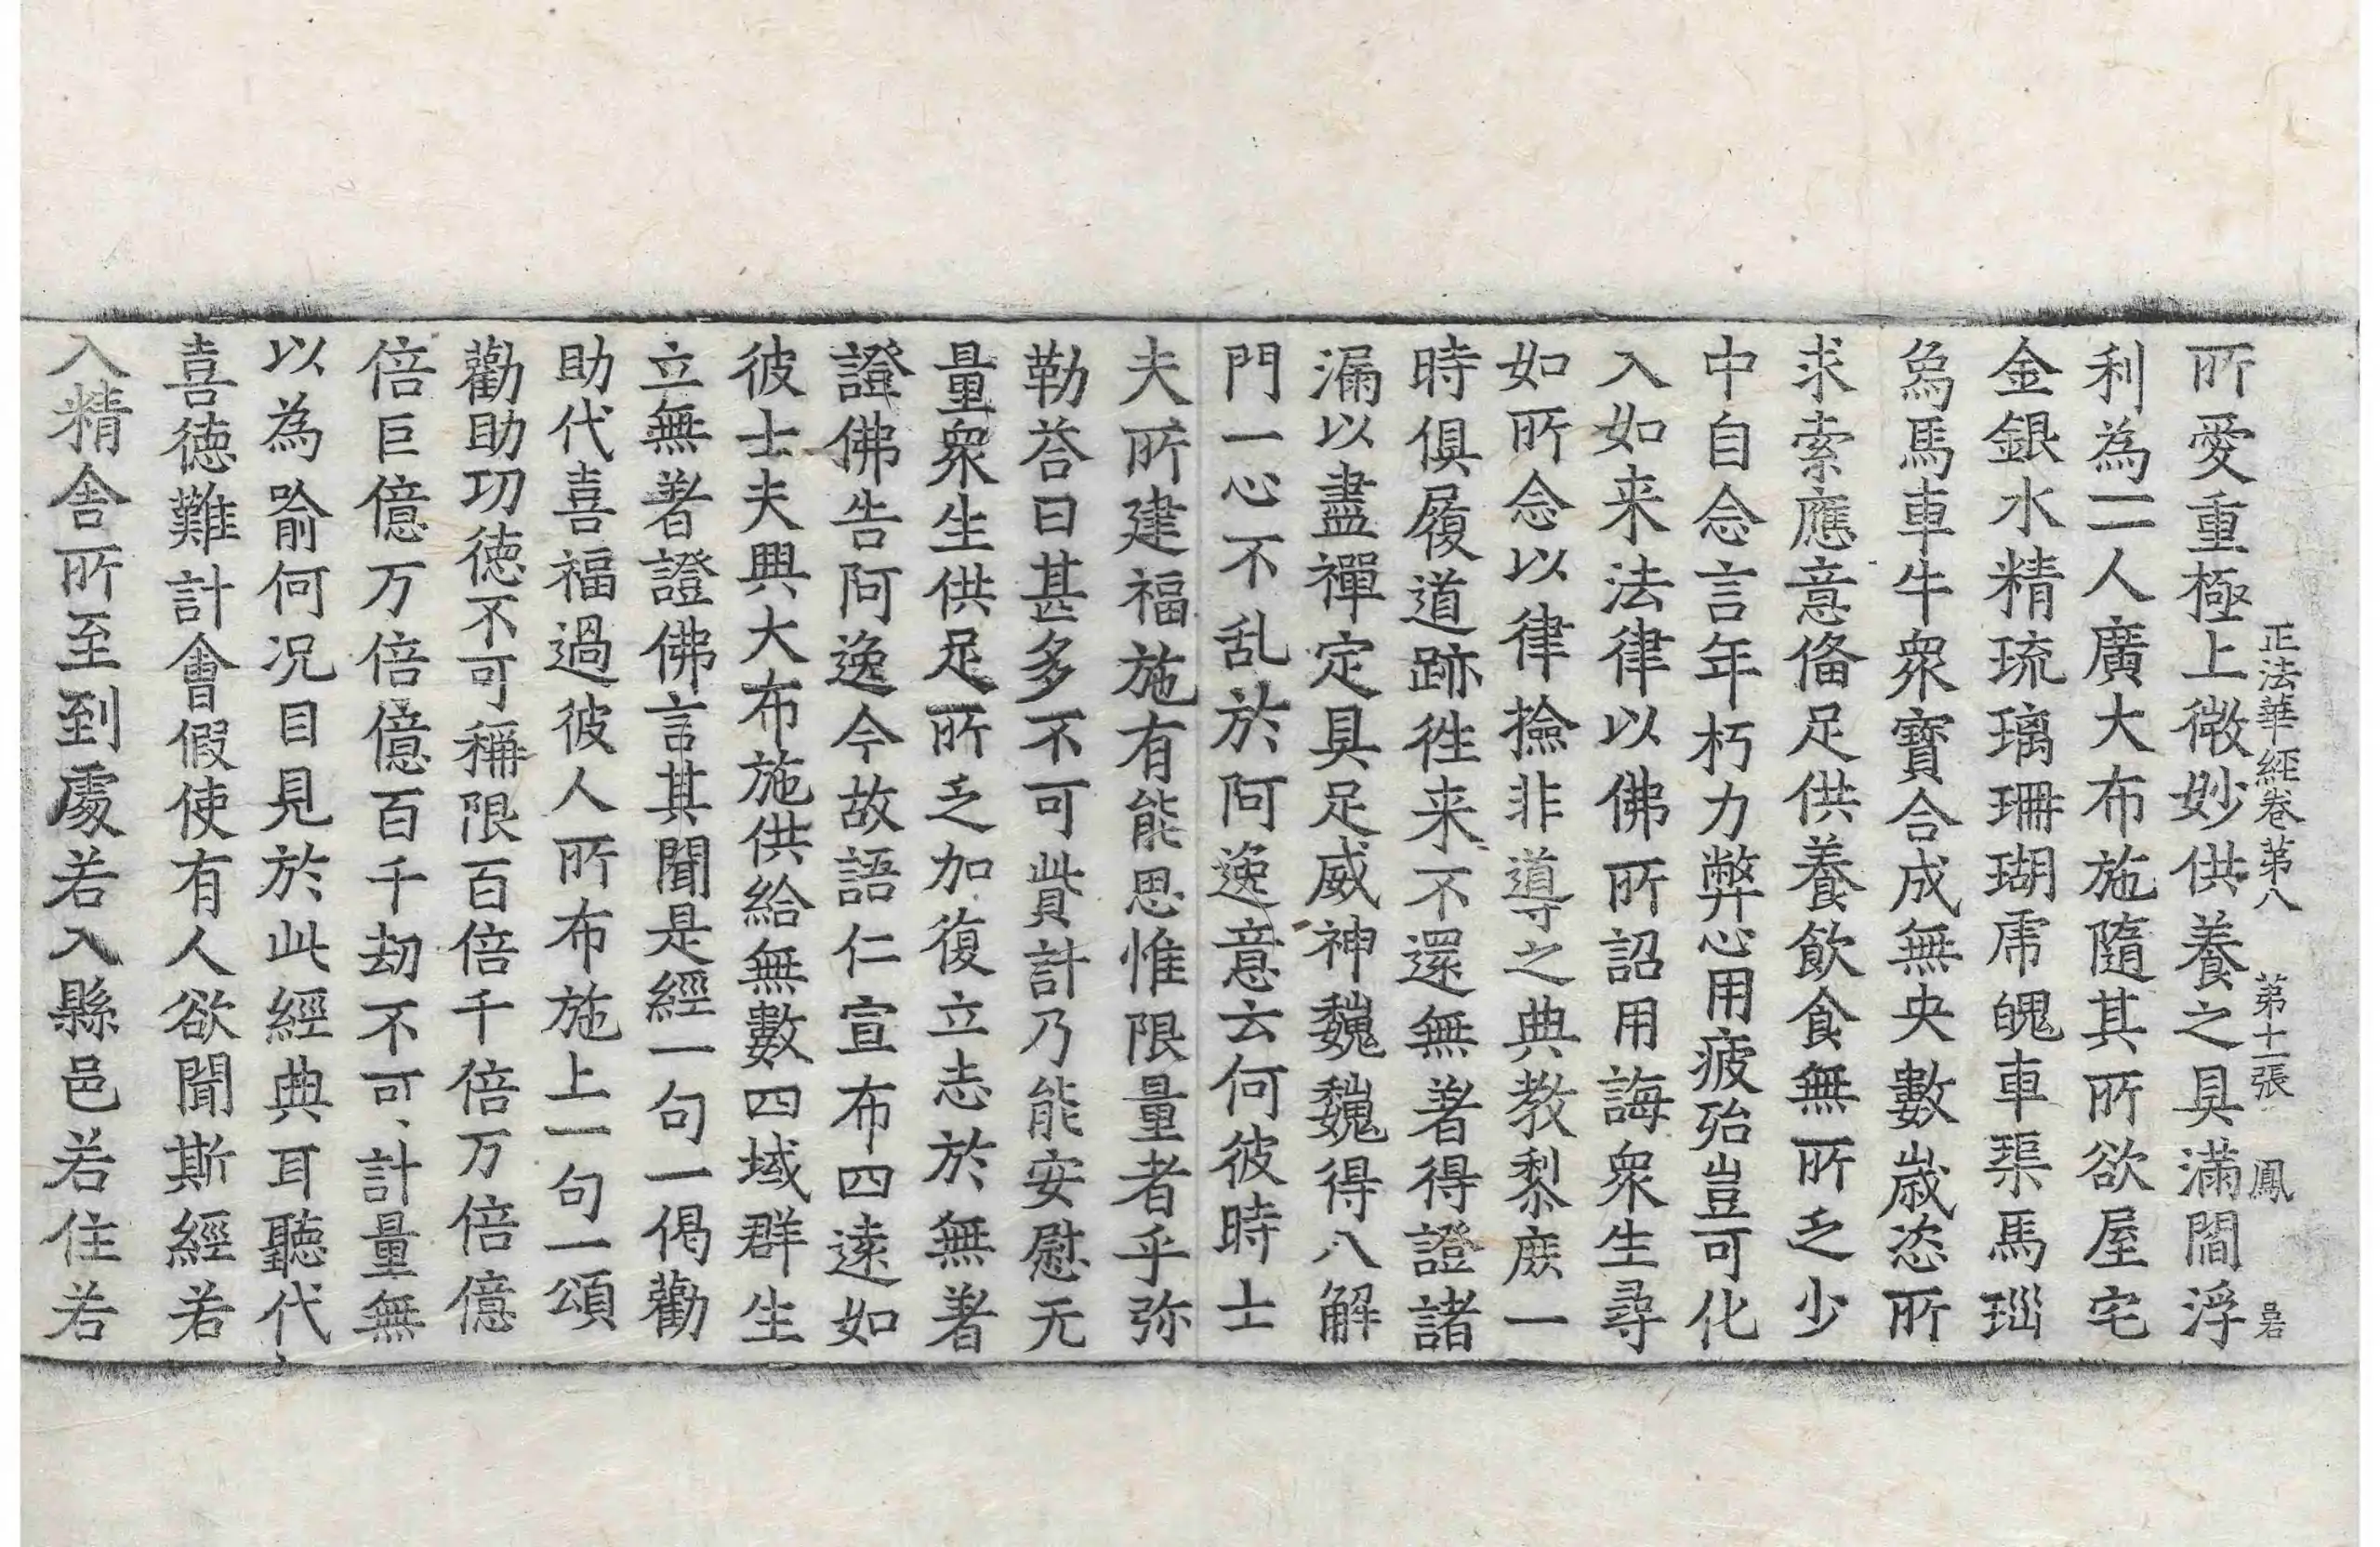 正法華經卷第八　第十一張　鳳
所愛重極上微妙供養之具滿閻浮
利為一一人廣大布施隨其所欲屋宅
金銀水精琉璃珊瑚虎魄車璖馬瑙
象馬車牛衆寶合成無央數歲恣所
求索應意俻足供養飲食無所乏少
中自念言年朽力弊心用疲殆豈可化
入如来法律以佛所詔用誨衆生尋
如所念以律撿非導之典教黎庶一
時俱履道跡徃来不還無著得證諸
漏以盡禪定具足威神巍巍得八解
門一心不乱於阿逸意云何彼時士
夫所建福施有能思惟限量者乎弥
勒荅曰甚多不可訾計乃能安慰无
量衆生供足所乏加復立志於無著
證佛告阿逸今故語仁宣布四逺如
彼士夫興大布施供給無數四域群生
立無著證佛言其聞是經一句一偈勸
助代喜福過彼人所布施上一句一頌
勸助功徳不可稱限百倍千倍万倍億
倍巨億万倍億百千劫不可計量無
以為喻何况目見於此經典耳聽代
喜徳難計會假使有人欲聞斯經若
入精舍所至到處若入縣邑若住若